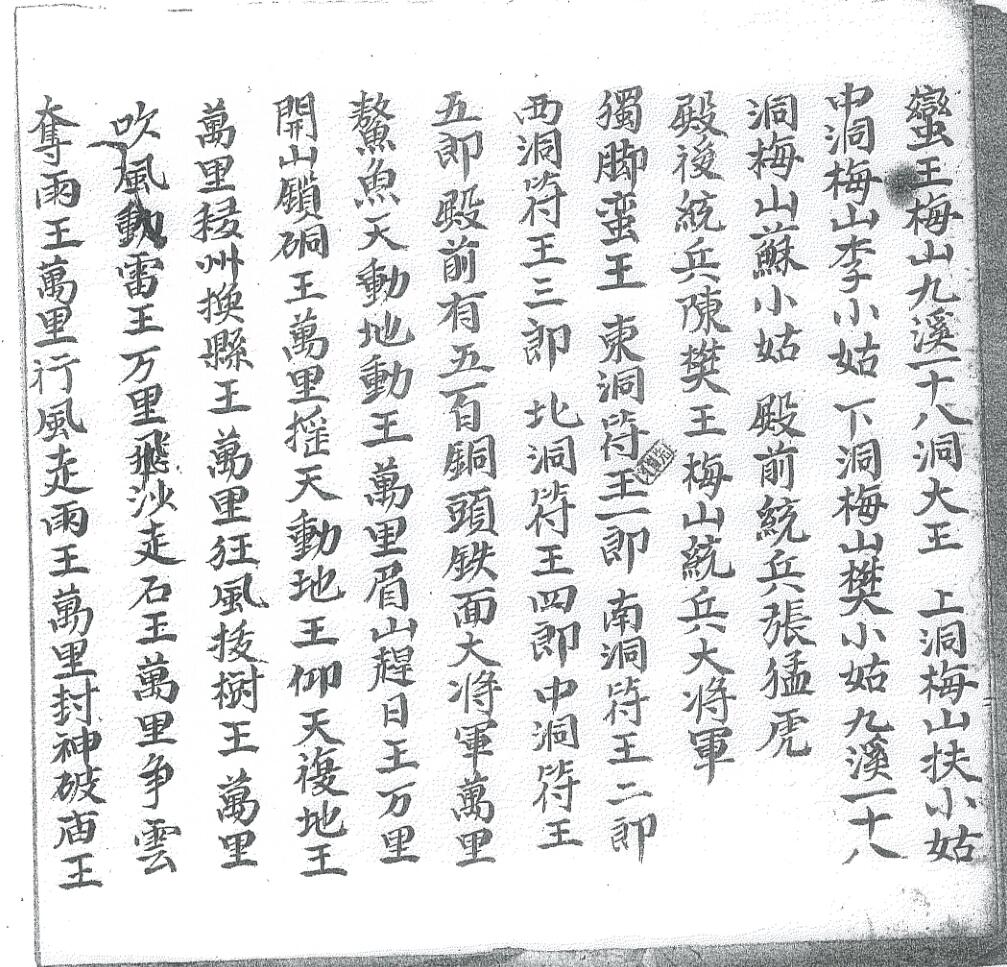 蠻王梅山九溪一十八洞大王 上洞梅山扶小姑
中洞梅山李小姑 下洞梅山樊小姑九溪一十八
洞梅山蘇小姑 殿前統兵張猛虎
殿後統兵陳樊王梅山統兵大将軍
獨脚蛮王 東洞符王一郎 南洞符王二郎
西洞符王三郎 北洞符王四郎中洞符王
五郎殿前有五百銅頭鉄面大将軍萬里
鰲魚天動地動王萬里眉山趕日王万里
開山鎖硐王萬里摇天動地王仰天複地王
萬里移州換縣王萬里狂風拔樹王萬里
吹風動雷王万里飛沙走石王萬里争雲
奪雨王萬里行風走雨王萬里封神破庙王